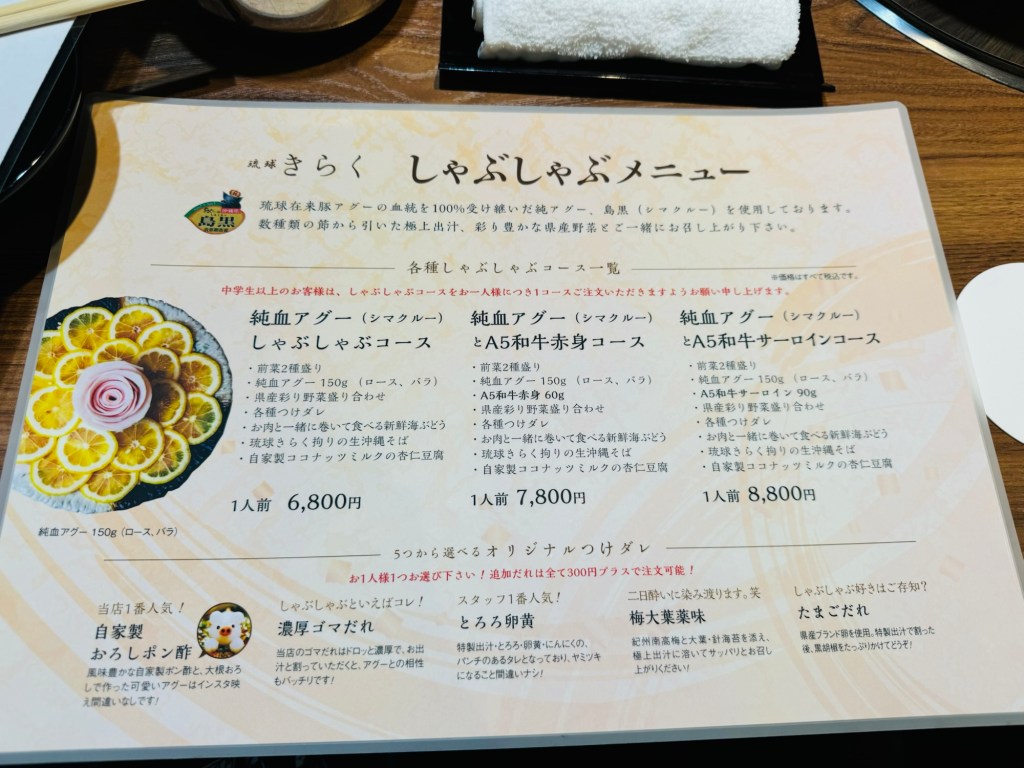 琉球 きらく しゃぶしゃぶメニュー
島黒
琉球在来豚アグーの血統を100%受け継いだ純アグー、島黒（シマクルー）を使用しております。
数種類の節から引いた極上出汁、彩り豊かな県産野菜とご一緒にお召し上がり下さい。
各種しゃぶしゃぶコース一覧
※価格はすべて税込です。
中学生以上のお客様は、しゃぶしゃぶコースをお一人様につき1コースご注文いただきますようお願い申し上げます。
純血アグー（シマクルー）
しゃぶしゃぶコース
・前菜2種盛り
・純血アグー 150g （ロース、バラ）
・県産彩り野菜盛り合わせ
・各種つけダレ
・お肉と一緒に巻いて食べる新鮮海ぶどう
・琉球きらく拘りの生沖縄そば
・自家製ココナッツミルクの杏仁豆腐
1人前 6,800円
純血アグー（シマクルー）
とA5和牛赤身コース
・前菜2種盛り
・純血アグー 150g （ロース、バラ）
・A5和牛赤身 60g
・県産彩り野菜盛り合わせ
・各種つけダレ
・お肉と一緒に巻いて食べる新鮮海ぶどう
・琉球きらく拘りの生沖縄そば
・自家製ココナッツミルクの杏仁豆腐
1人前 7,800円
純血アグー（シマクルー）
とA5和牛サーロインコース
・前菜2種盛り
・純血アグー 150g （ロース、バラ）
・A5和牛サーロイン 90g
・県産彩り野菜盛り合わせ
・各種つけダレ
・お肉と一緒に巻いて食べる新鮮海ぶどう
・琉球きらく拘りの生沖縄そば
・自家製ココナッツミルクの杏仁豆腐
1人前 8,800円
純血アグー 150g（ロース、バラ）
5つから選べるオリジナルつけダレ
お1人様1つお選び下さい！追加だれは全て300円プラスで注文可能！
当店1番人気！
自家製
おろしポン酢
風味豊かな自家製ポン酢と、大根おろ
しで作った可愛いアグーはインスタ映
え間違いなしです！
しゃぶしゃぶといえばコレ！
濃厚ゴマだれ
当店のゴマだれはドロッと濃厚で、お出
汁と割っていただくと、アグーとの相性
もバッチリです！
スタッフ1番人気！
とろろ卵黄
特製出汁・とろろ・卵黄・にんにくの、
パンチのあるタレとなっており、ヤミツキ
になること間違いナシ！
二日酔いに染み渡ります。笑
梅大葉薬味
紀州南高梅と大葉・針海苔を添え、
極上出汁に溶いてサッパリとお召し
上がりください！
しゃぶしゃぶ好きはご存知？
たまごだれ
県産ブランド卵を使用。特製出汁で割った
後、黒胡椒をたっぷりかけてどうぞ！